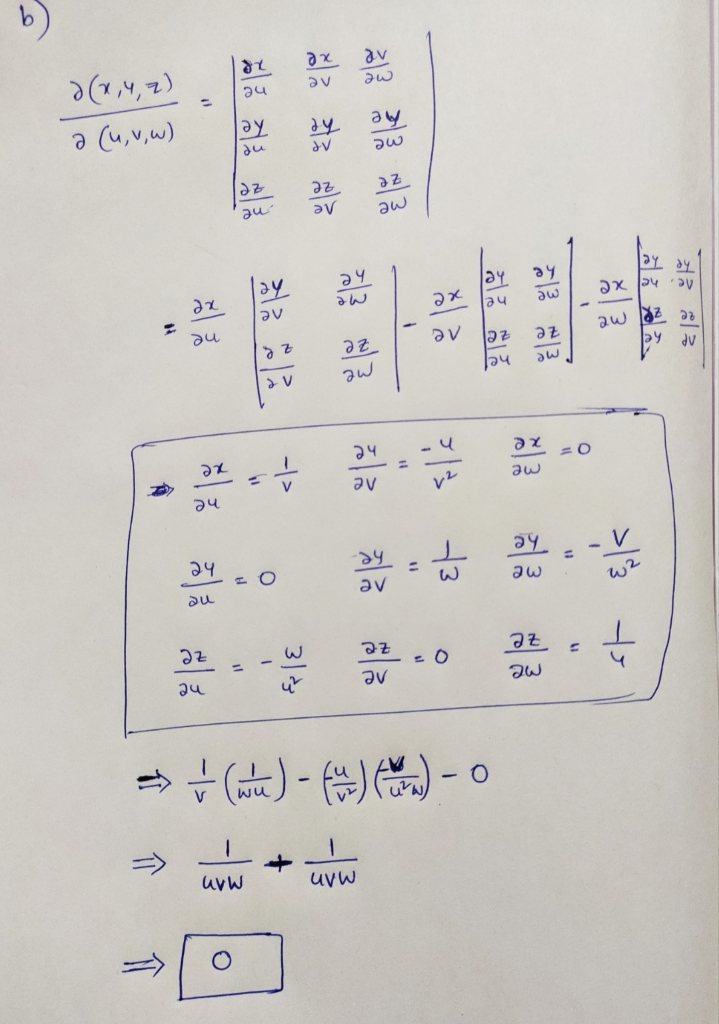 b)
∂(x,y,z)/∂(u,v,w) = | ∂x/∂u ∂x/∂v ∂v/∂w |
| ∂y/∂u ∂y/∂v ∂y/∂w |
| ∂z/∂u ∂z/∂v ∂z/∂w |
= ∂x/∂u | ∂y/∂v ∂y/∂w ; ∂z/∂v ∂z/∂w | - ∂x/∂v | ∂y/∂u ∂y/∂w ; ∂z/∂u ∂z/∂w | - ∂x/∂w | ∂y/∂u ∂y/∂v ; ∂z/∂y ∂z/∂v |
⇒ ∂x/∂u = 1/v ∂y/∂v = -u/v² ∂x/∂w = 0
∂y/∂u = 0 ∂y/∂v = 1/w ∂y/∂w = -v/w²
∂z/∂u = -w/u² ∂z/∂v = 0 ∂z/∂w = 1/u
⇒ 1/v (1/wu) - (-u/v²)(-v/u²w) - 0
⇒ 1/uvw + 1/uvw
⇒ 0